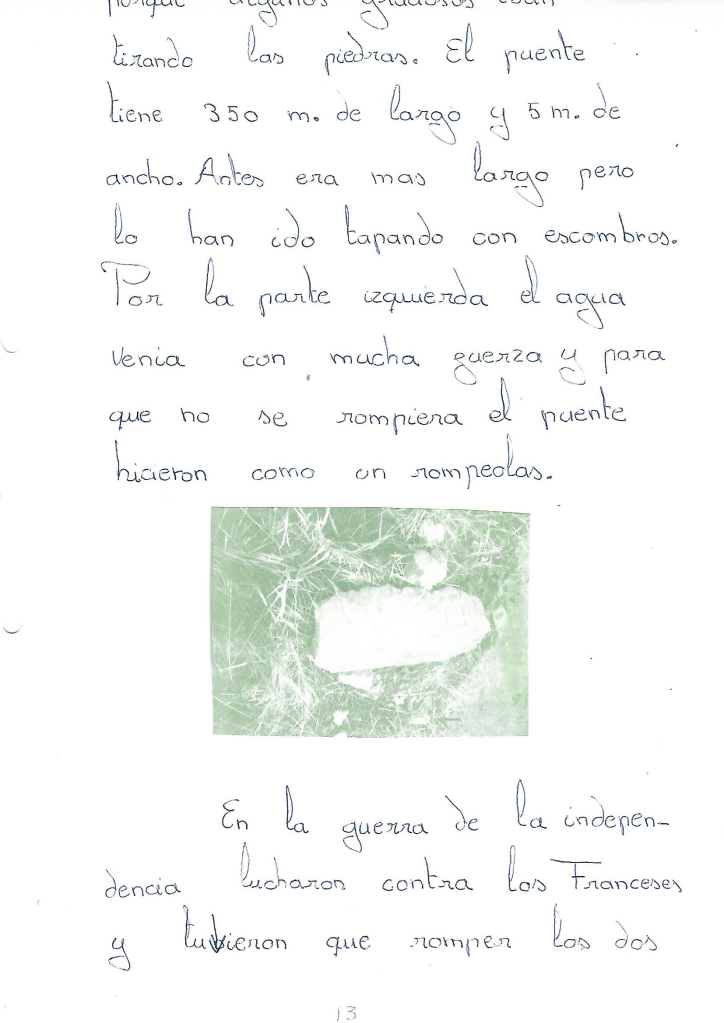 porque algunos graciosos están
tirando las piedras. El puente
tiene 350 m. de largo y 5 m. de
ancho. Antes era mas largo pero
lo han ido tapando con escombros.
Por la parte izquierda el agua
venia con mucha guerza y para
que no se rompiera el puente
hicieron como un rompeolas.
En la guerra de la indepen-
dencia lucharon contra los Franceses
y tuvieron que romper los dos
13